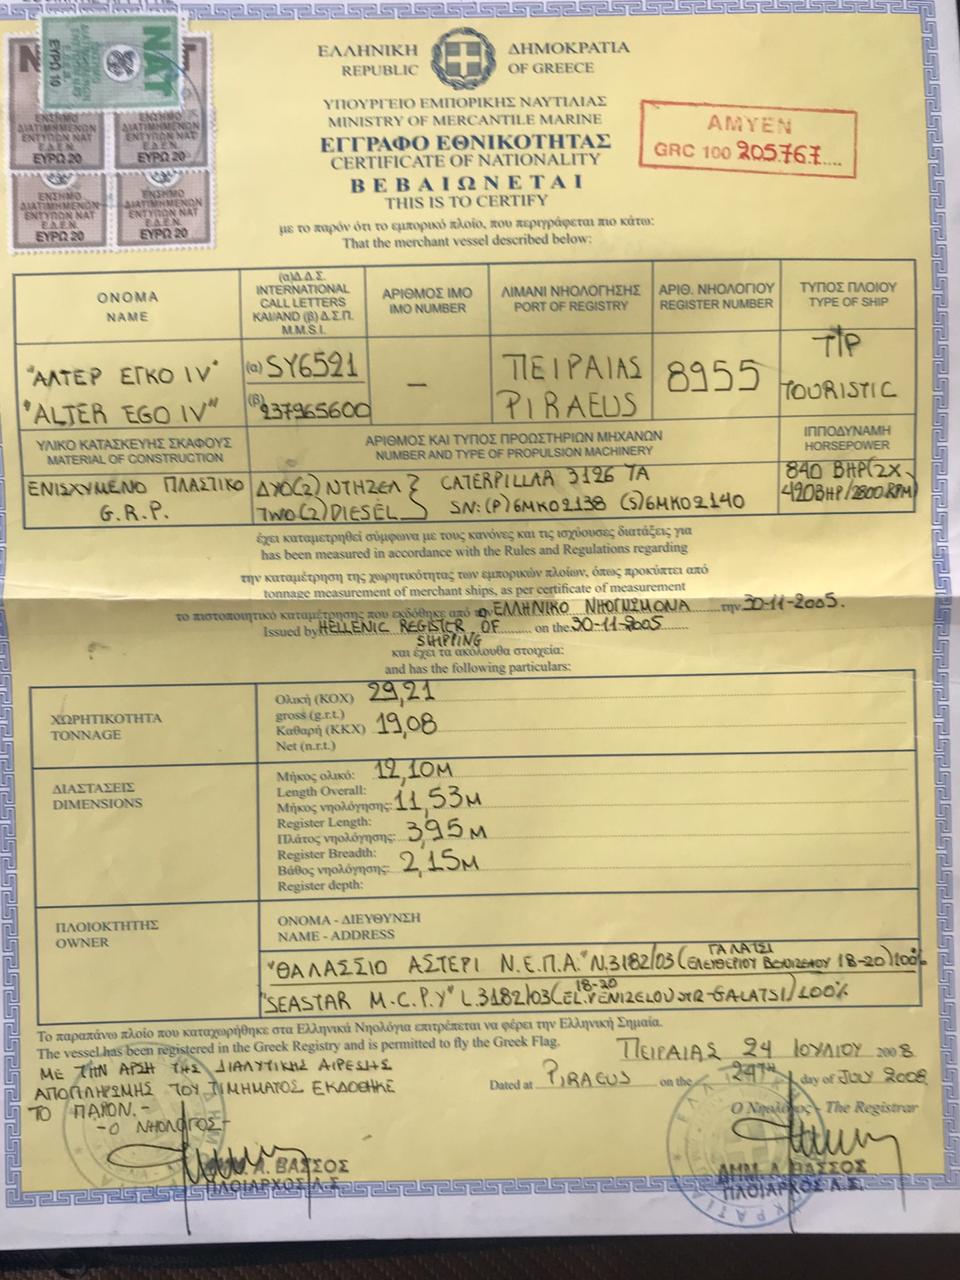 ΝΑΤ
ΕΥΡΩ 10
ΕΝΣΗΜΟ
ΔΙΑΤΙΜΗΜΕΝΩΝ
ΕΝΤΥΠΩΝ ΝΑΤ
Ε.Δ.Ε.Ν.
ΕΥΡΩ 20
ΕΝΣΗΜΟ
ΔΙΑΤΙΜΗΜΕΝΩΝ
ΕΝΤΥΠΩΝ ΝΑΤ
Ε.Δ.Ε.Ν.
ΕΥΡΩ 20
ΕΝΣΗΜΟ
ΔΙΑΤΙΜΗΜΕΝΩΝ
ΕΝΤΥΠΩΝ ΝΑΤ
Ε.Δ.Ε.Ν.
ΕΥΡΩ 20
ΕΝΣΗΜΟ
ΔΙΑΤΙΜΗΜΕΝΩΝ
ΕΝΤΥΠΩΝ ΝΑΤ
Ε.Δ.Ε.Ν.
ΕΥΡΩ 20
ΕΛΛΗΝΙΚΗ ΔΗΜΟΚΡΑΤΙΑ
REPUBLIC OF GREECE
ΥΠΟΥΡΓΕΙΟ ΕΜΠΟΡΙΚΗΣ ΝΑΥΤΙΛΙΑΣ
MINISTRY OF MERCANTILE MARINE
ΕΓΓΡΑΦΟ ΕΘΝΙΚΟΤΗΤΑΣ
CERTIFICATE OF NATIONALITY
ΒΕΒΑΙΩΝΕΤΑΙ
THIS IS TO CERTIFY
ΑΜΥΕΝ
GRC 100 205.767
με το παρόν ότι το εμπορικό πλοίο, που περιγράφεται πιο κάτω:
That the merchant vessel described below:
ΟΝΟΜΑ
NAME
(α)Δ.Δ.Σ.
INTERNATIONAL
CALL LETTERS
ΚΑΙ/AND (β) Δ.Σ.Π.
M.M.S.I.
ΑΡΙΘΜΟΣ ΙΜΟ
IMO NUMBER
ΛΙΜΑΝΙ ΝΗΟΛΟΓΗΣΗΣ
PORT OF REGISTRY
ΑΡΙΘ. ΝΗΟΛΟΓΙΟΥ
REGISTER NUMBER
ΤΥΠΟΣ ΠΛΟΙΟΥ
TYPE OF SHIP
"ΑΛΤΕΡ ΕΓΚΟ IV"
"ALTER EGO IV"
(α) SY6591
(β) 237965600
—
ΠΕΙΡΑΙΑΣ
PIRAEUS
8955
Τ/Ρ
TOURISTIC
ΥΛΙΚΟ ΚΑΤΑΣΚΕΥΗΣ ΣΚΑΦΟΥΣ
MATERIAL OF CONSTRUCTION
ΑΡΙΘΜΟΣ ΚΑΙ ΤΥΠΟΣ ΠΡΟΩΣΤΗΡΙΩΝ ΜΗΧΑΝΩΝ
NUMBER AND TYPE OF PROPULSION MACHINERY
ΙΠΠΟΔΥΝΑΜΗ
HORSEPOWER
ΕΝΙΣΧΥΜΕΝΟ ΠΛΑΣΤΙΚΟ
G.R.P.
ΔΥΟ(2) ΝΤΗΖΕΛ } CATERPILLAR 3126 TA
TWO(2) DIESEL } SN: (P) 6MK02138 (S) 6MK02140
840 BHP (2X
420BHP/2800 RPM)
έχει καταμετρηθεί σύμφωνα με τους κανόνες και τις ισχύουσες διατάξεις για
has been measured in accordance with the Rules and Regulations regarding
την καταμέτρηση της χωρητικότητας των εμπορικών πλοίων, όπως προκύπτει από
tonnage measurement of merchant ships, as per certificate of measurement
το πιστοποιητικό καταμέτρησης που εκδόθηκε από το ΕΛΛΗΝΙΚΟ ΝΗΟΓΝΩΜΟΝΑ την 30-11-2005.
Issued by HELLENIC REGISTER OF on the 30-11-2005
SHIPPING
και έχει τα ακόλουθα στοιχεία:
and has the following particulars:
ΧΩΡΗΤΙΚΟΤΗΤΑ
TONNAGE
Ολική (ΚΟΧ) 29,21
gross (g.r.t.)
Καθαρή (ΚΚΧ) 19,08
Net (n.r.t.)
ΔΙΑΣΤΑΣΕΙΣ
DIMENSIONS
Μήκος ολικό: 12,10 M
Length Overall:
Μήκος νηολόγησης: 11,53 M
Register Length:
Πλάτος νηολόγησης: 3,95 M
Register Breadth:
Βάθος νηολόγησης: 2,15 M
Register depth:
ΠΛΟΙΟΚΤΗΤΗΣ
OWNER
ΟΝΟΜΑ - ΔΙΕΥΘΥΝΣΗ
NAME - ADDRESS
ΓΑΛΑΤΣΙ
"ΘΑΛΑΣΣΙΟ ΑΣΤΕΡΙ Ν.Ε.Π.Α." Ν.3182/03 (ΕΛΕΥΘΕΡΙΟΥ ΒΕΝΙΖΕΛΟΥ 18-20) 100%
18-20
"SEASTAR M.C.P.Y" L.3182/03 (EL.VENIZELOU STR-GALATSI) 100%
Το παραπάνω πλοίο που καταχωρήθηκε στα Ελληνικά Νηολόγια επιτρέπεται να φέρει την Ελληνική Σημαία.
The vessel has been registered in the Greek Registry and is permitted to fly the Greek Flag.
ΠΕΙΡΑΙΑΣ 24 ΙΟΥΛΙΟΥ 2008
Dated at PIRAEUS on the 24TH day of JULY 2008
ΜΕ ΤΗΝ ΑΡΣΗ ΤΗΣ ΔΙΑΛΥΤΙΚΗΣ ΑΙΡΕΣΗΣ
ΑΠΟΠΛΗΡΩΜΗΣ ΤΟΥ ΤΙΜΗΜΑΤΟΣ ΕΚΔΟΘΗΚΕ
ΤΟ ΠΑΡΟΝ.-
- Ο ΝΗΟΛΟΓΟΣ -
Α. ΒΑΣΣΟΣ
ΠΛΟΙΑΡΧΟΣ Λ.Σ.
Ο Νηολόγος - The Registrar
ΔΗΜ. Α. ΒΑΣΣΟΣ
ΠΛΟΙΑΡΧΟΣ Λ.Σ.